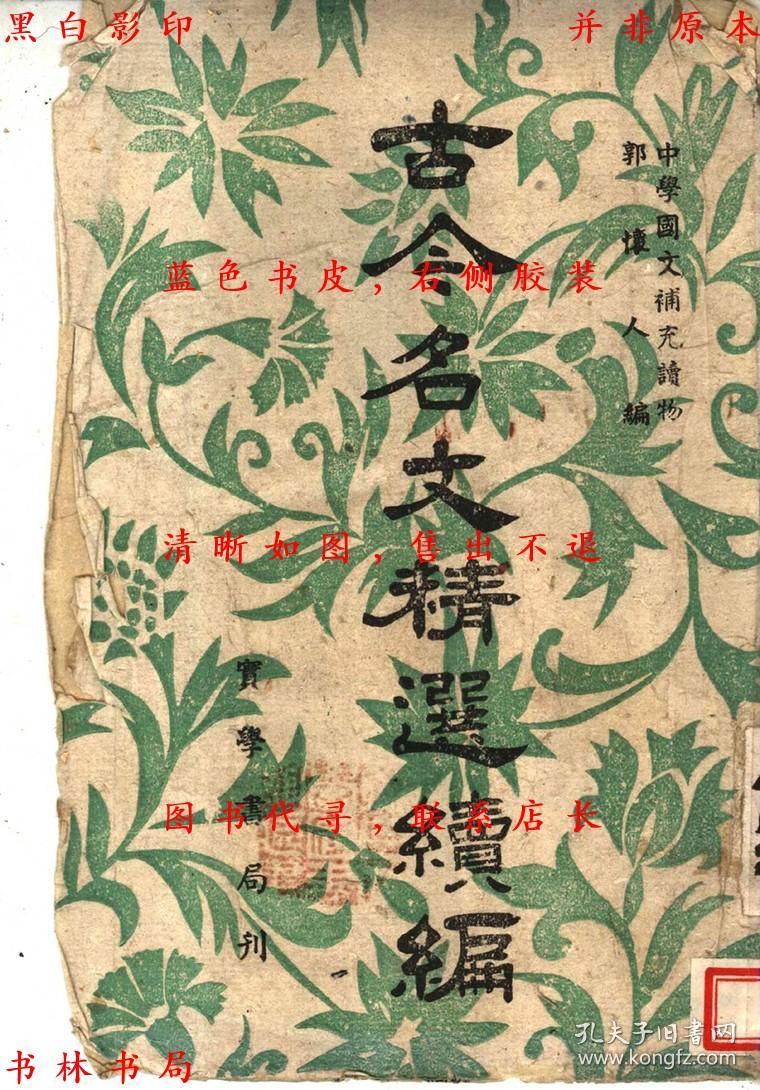 黑白影印
并非原本
中學國文補充讀物
郭懷人編
古今名文精選續編
蓝色书皮,右侧胶装
清晰如图,售出不退
图书代寻,联系店长
實學書局刊
书林书局
孔夫子旧书网
www.kongfz.com